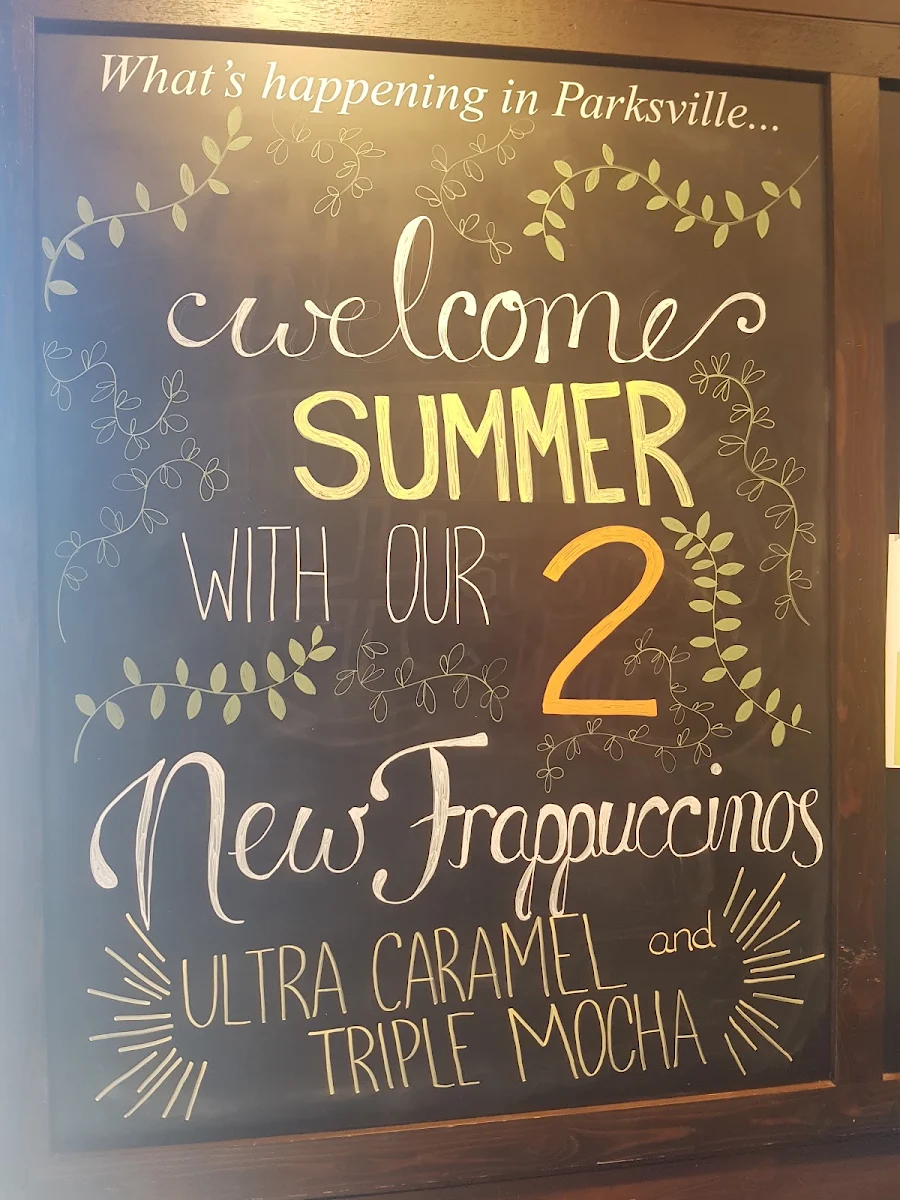 What's happening in Parksville...
welcome
SUMMER
WITH OUR 2
New Frappuccinos
ULTRA CARAMEL and
TRIPLE MOCHA